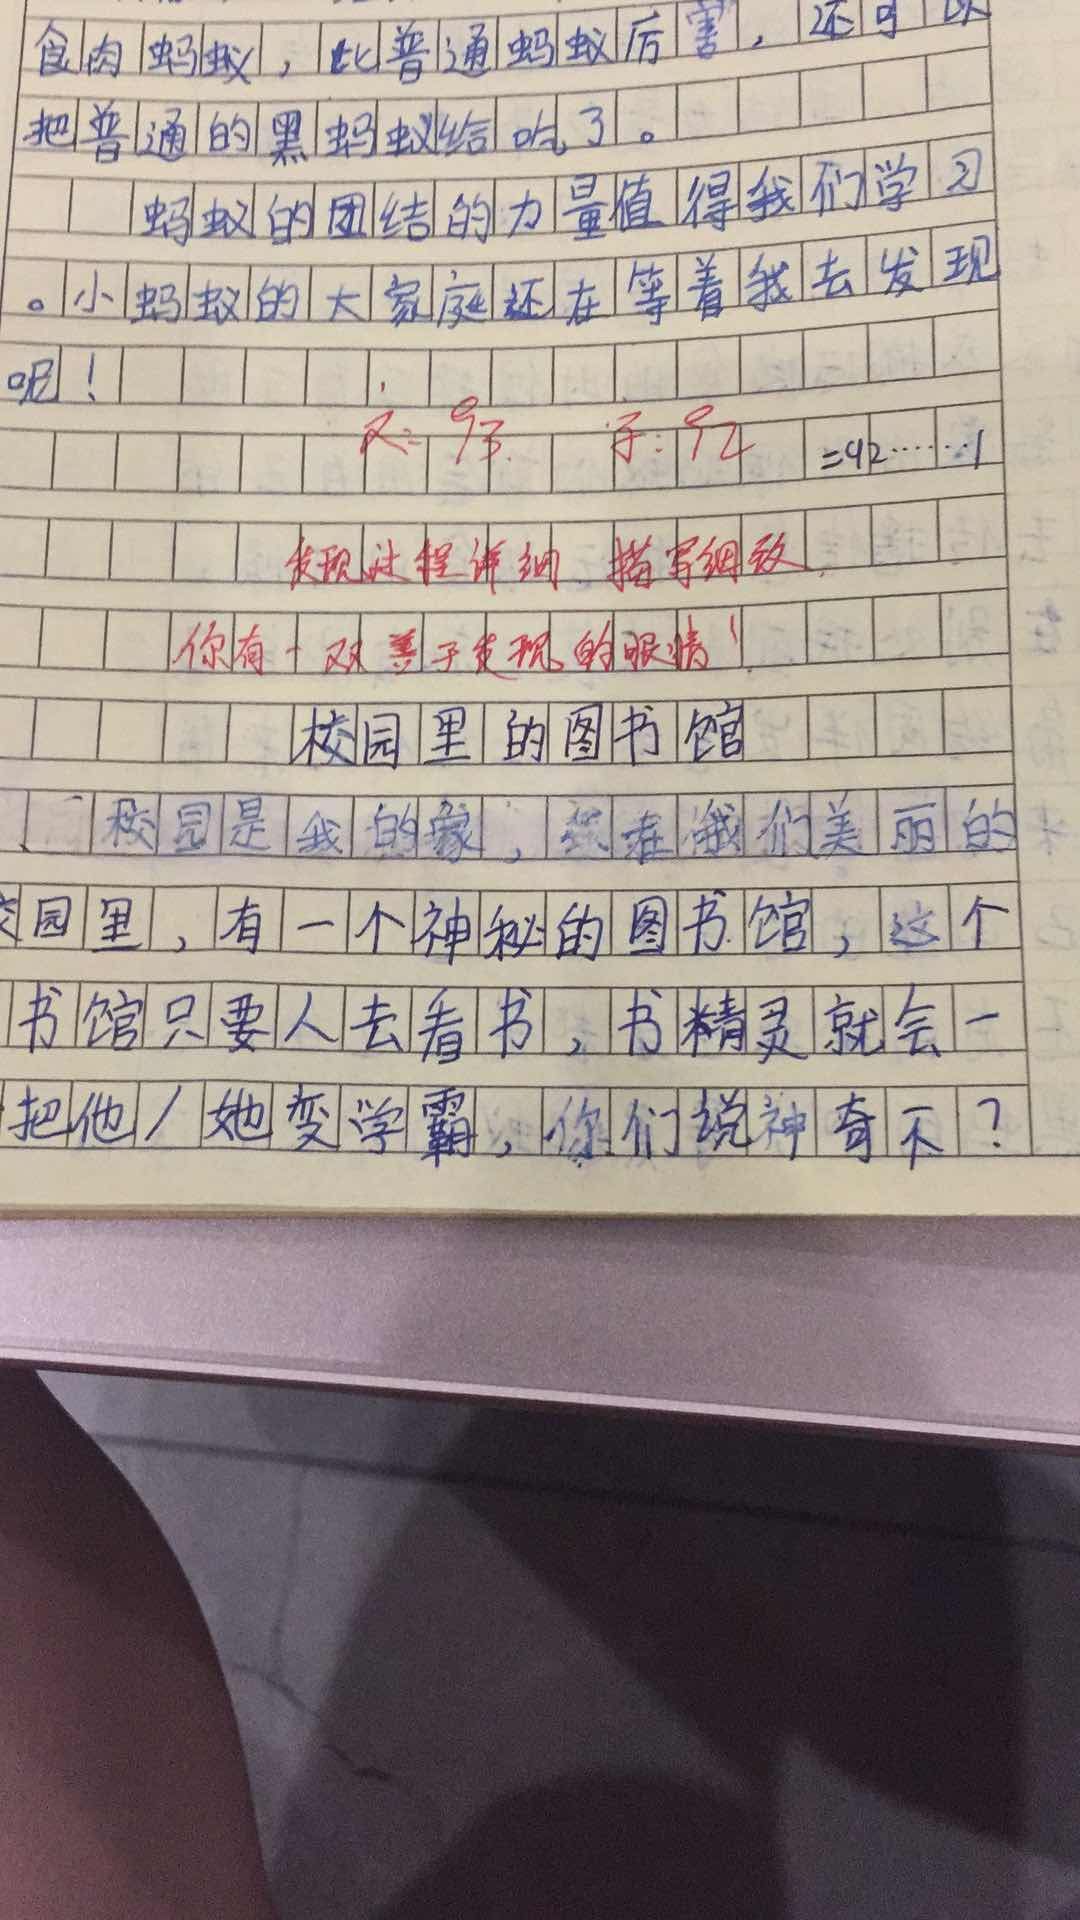 食肉蚂蚁，比普通蚂蚁厉害，还可以
把普通的黑蚂蚁给吃了。
蚂蚁的团结的力量值得我们学习
。小蚂蚁的大家庭还在等着我去发现
呢！
文：93 字：92 =92……1
发现过程详细 描写细致
你有一双善于发现的眼睛！
校园里的图书馆
校园是我的家，在我们美丽的
园里，有一个神秘的图书馆，这个
书馆只要人去看书，书精灵就会一
把他/她变学霸，你们说神奇不？